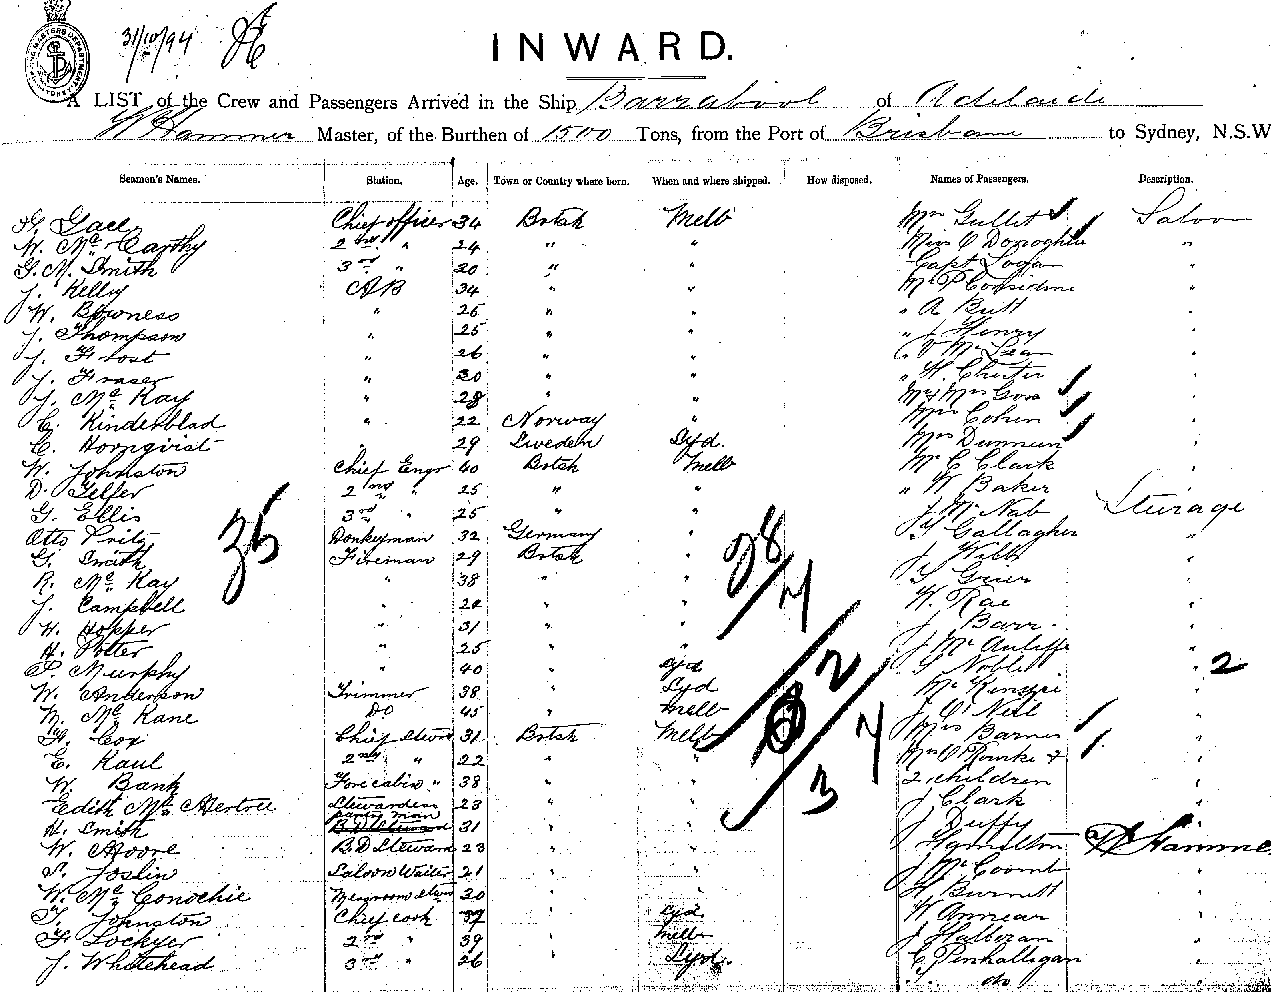 31/10/94
INWARD.
A LIST of the Crew and Passengers Arrived in the Ship Barrabool of Adelaide
W Hammer Master, of the Burthen of 1500 Tons, from the Port of Brisbane to Sydney, N.S.W
Seamen's Names. Station. Age. Town or Country where born. When and where shipped. How disposed. Names of Passengers. Description.
Chief officer 34 Botsh Melb Mrs Gullet Saloon
W. Mc Carthy 2nd " 24 " " Miss O Donoghue "
G. M. Smith 3rd " 20 " " Capt Logan "
J. Kelly AB 34 " " Mr P Considine "
W. Bowness " 26 " " " A Butt "
J. Thompson " 25 " " " J Henry "
J. Frost " 26 " " Mc Lean "
J. Fraser " 30 " " " H. Chester "
J. Mc Kay " 28 " " Mr & Mrs Goss "
C. Kinderblad " 22 Norway " Mrs Cohen "
C. Hornqvist " 29 Sweden Syd. Mrs "
W. Johnston Chief Engr 40 Botsh Melb Mr C Clark "
D. Telfer 2nd " 25 " " " W Baker "
G. Ellis 3rd " 25 " " J Mc Nab Sturage
Otto Donkeyman 32 Germany " Gallagher "
G. Smith Fireman 29 Botsh " J "
R. Mc Kay " 38 " " Grier "
J. Campbell " " " W. Rae "
W. Hopper " 31 " " J Barr "
H. Potter " 25 " " J Mc Auliffe "
P. Murphy " 40 " Syd Noble " 2
W. Anderson Trimmer 38 " Syd Mc Kenzie "
N. Mc Kane Do 45 " Melb J O'Neil "
Cox Chief Stwd 31 Botsh Melb Mrs Barnes "
E. Kaul 2nd " 22 " " Mrs O'Rourke & "
W. Bank Forecabin " 38 " " 2 children "
Edith Mc Stewardess 23 " " J Clark "
H. Smith pantry man 31 " " J Duffy "
W. Moore B.D Steward 23 " " Hamilton W Hammer
S. Joslin Saloon Waiter 21 " " J Mc Coomb "
W. Mc Conochie Messroom Stwd 20 " " Burnett "
T. Johnston Chief cook 37 " Syd W Annear "
F Lockyer 2nd " 39 " Melb J Halloran "
J. Whitehead 3rd " 26 " Syd. C. Penhalligan "
do "
35
28/7
2/7
3